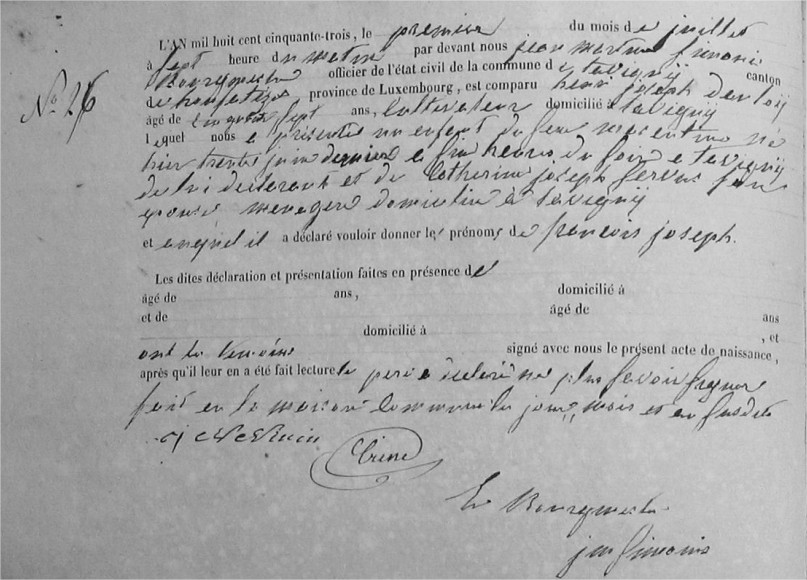 N° 26
L'AN mil huit cent cinquante-trois, le premier du mois de juillet
à sept heure du matin par devant nous jean martin simonis
Bourgmestre officier de l'état civil de la commune de tavigny canton
de houffalize province de Luxembourg, est comparu henri joseph
âgé de cinquante sept ans, Cultivateur domicilié à tavigny
lequel nous a présenté un enfant du sexe masculin né
hier trente juin dernier a heures du soir a tavigny
de lui declarant et de Catherine joseph servais son
epouse menagere domicilié à tavigny
et auquel il a déclaré vouloir donner les prénoms de francois joseph.
Les dites déclaration et présentation faites en présence de
âgé de ans, domicilié à
et de âgé de ans
domicilié à , et
ont les temoins signé avec nous le présent acte de naissance,
après qu'il leur en a été fait lecture le pere a declaré ne plus savoir signer
fait en la maison Commune les jour, mois et an susdits
Le Bourgmestre
jm simonis